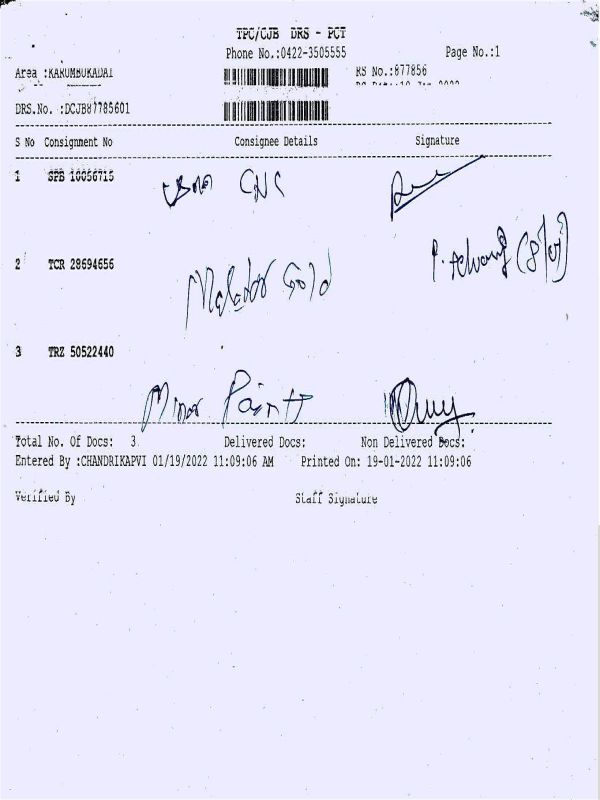 TPC/CJB DRS - PCT
Phone No.:0422-3505555 Page No.:1
Area :KARUMBUKADAI RS No.:877856
DRS.No. :DCJB87785601
S No Consignment No Consignee Details Signature
1 SFB 10056715 CNC
2 TCR 28694656 Malabar Gold
3 TRZ 50522440 Paints
Total No. Of Docs: 3 Delivered Docs: Non Delivered Docs:
Entered By :CHANDRIKAPVI 01/19/2022 11:09:06 AM Printed On: 19-01-2022 11:09:06
Verified By Staff Signature